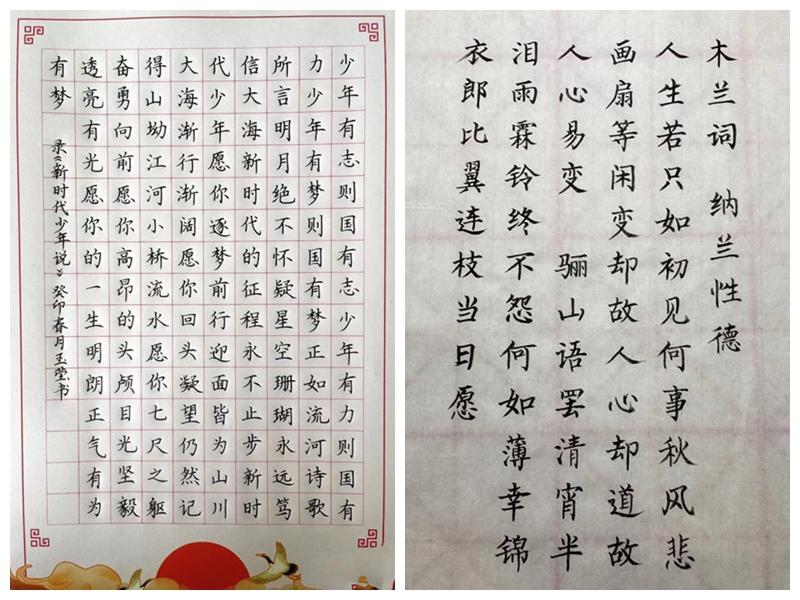 少年有志则国有志少年有力则国有
力少年有梦则国有梦正如流河诗歌
所言明月绝不怀疑星空珊瑚永远笃
信大海新时代的征程永不止步新时
代少年愿你逐梦前行迎面皆为山川
大海渐行渐阔愿你回头凝望仍然记
得山坳江河小桥流水愿你七尺之躯
奋勇向前愿你高昂的头颅目光坚毅
透亮有光愿你的一生明朗正气有为
有梦
录《新时代少年说》癸卯春月玉莹书
木兰词 纳兰性德
人生若只如初见何事秋风悲
画扇等闲变却故人心却道故
人心易变 骊山语罢清宵半
泪雨霖铃终不怨何如薄幸锦
衣郎比翼连枝当日愿